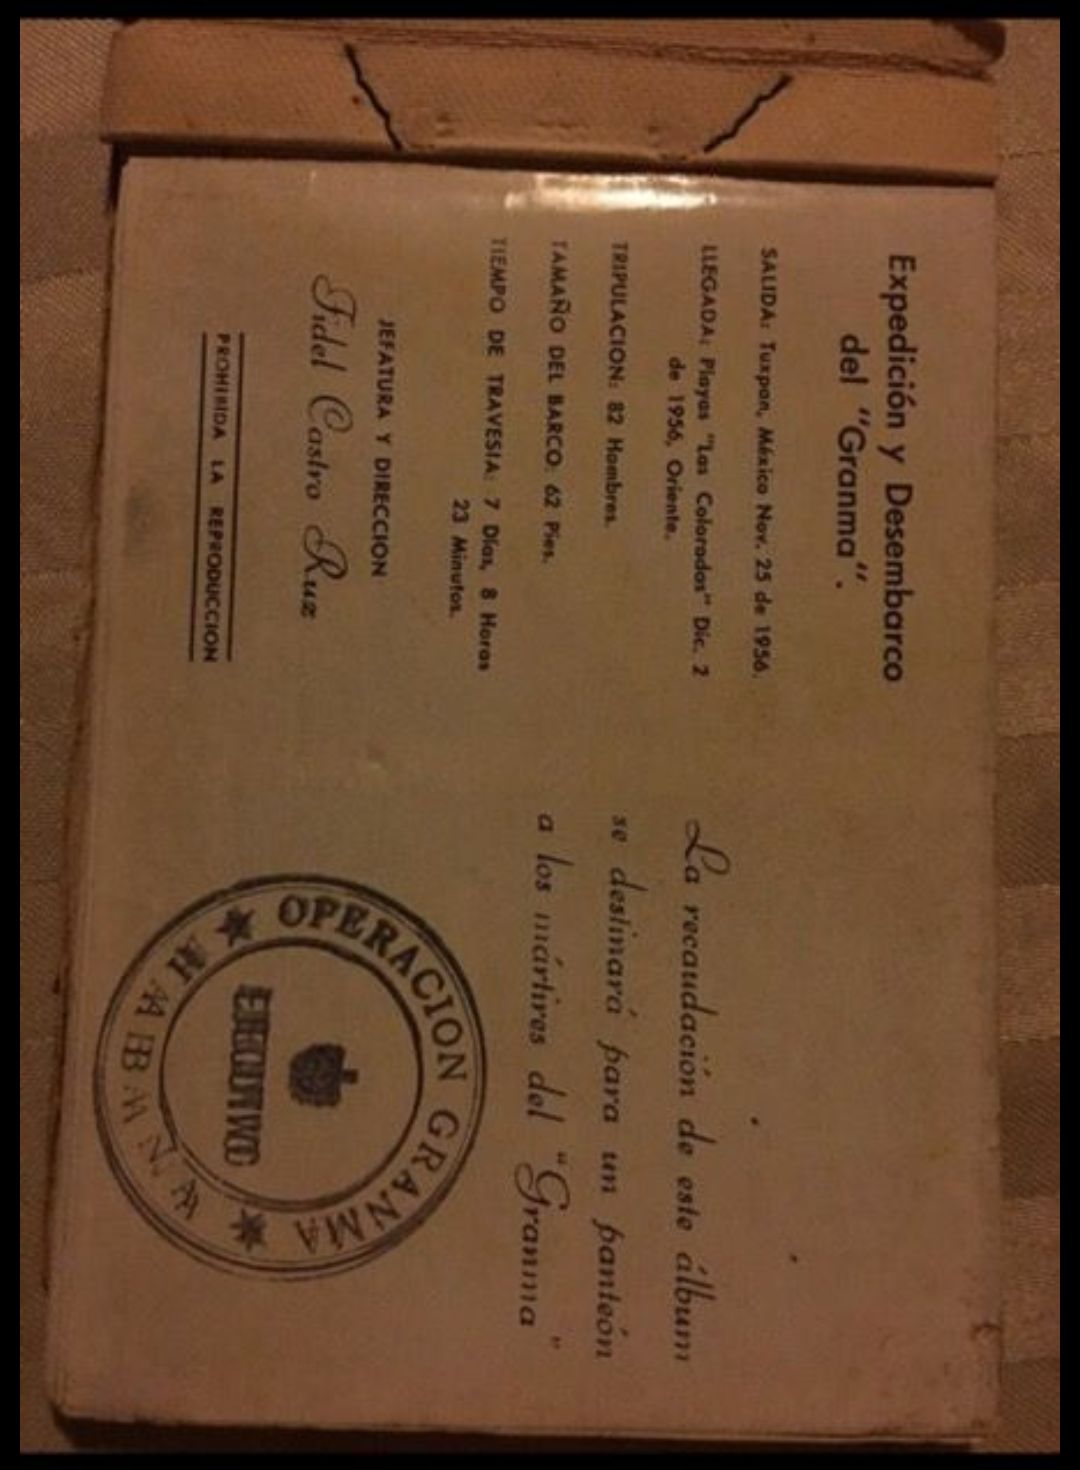 Expedición y Desembarco
del "Granma".
SALIDA: Tuxpan, México Nov. 25 de 1956.
LLEGADA: Playas "Las Coloradas" Dic. 2
de 1956, Oriente.
TRIPULACION: 82 Hombres.
TAMAÑO DEL BARCO: 62 Pies.
TIEMPO DE TRAVESIA: 7 Días, 8 Horas
23 Minutos.
JEFATURA Y DIRECCION
Fidel Castro Ruz
PROHIBIDA LA REPRODUCCION
La recaudación de este álbum
se destinará para un panteón
a los mártires del "Granma"
OPERACION GRANMA
HABANA